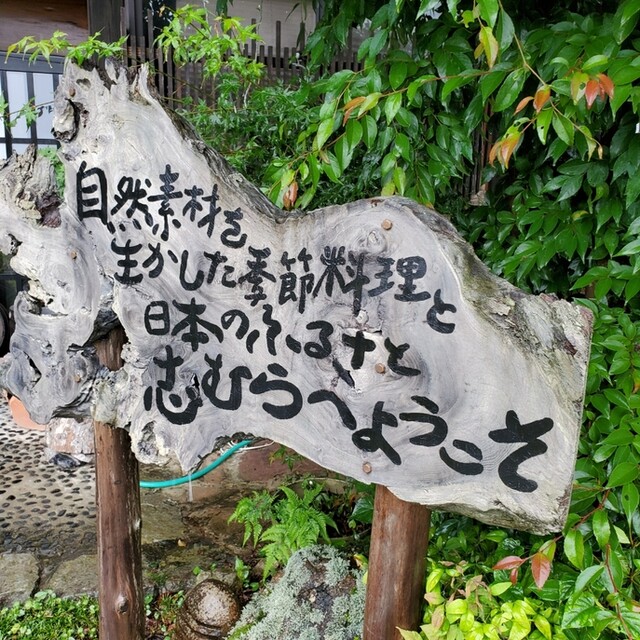 自然素材を
生かした季節料理と
日本のふるさと
志むらへようこそ